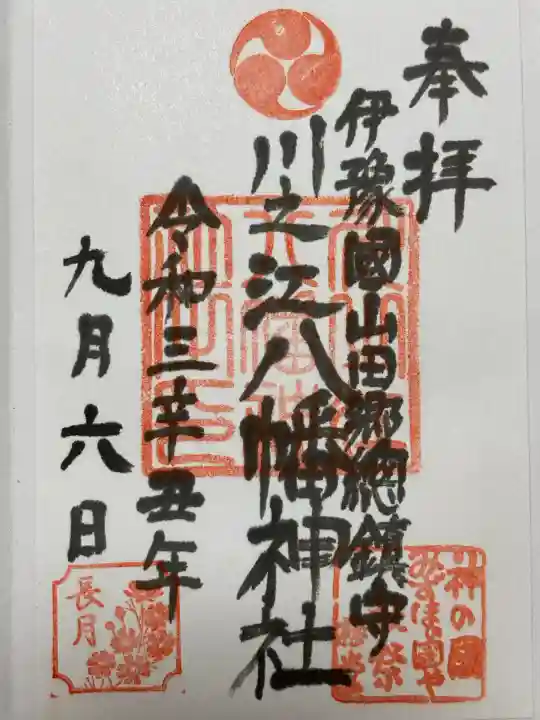 奉拝
伊豫國山田郷總鎮守
川之江八幡神社
令和三辛丑年
九月六日
神の國
長月